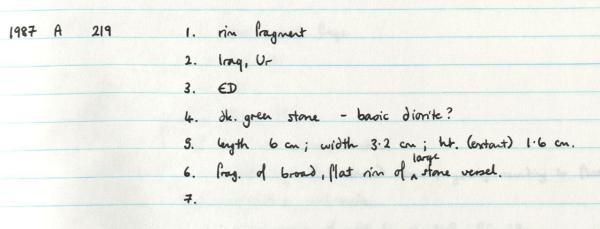 1987 A 219 1. rim fragment
2. Iraq, Ur
3. ED
4. dk. green stone - basic diorite?
5. length 6 cm; width 3.2 cm; ht. (extant) 1.6 cm.
6. frag. of broad, flat rim of large stone vessel.
7.